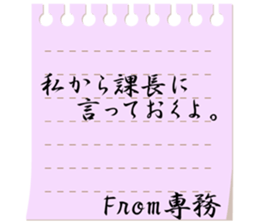 私から課長に
言っておくよ。
From専務